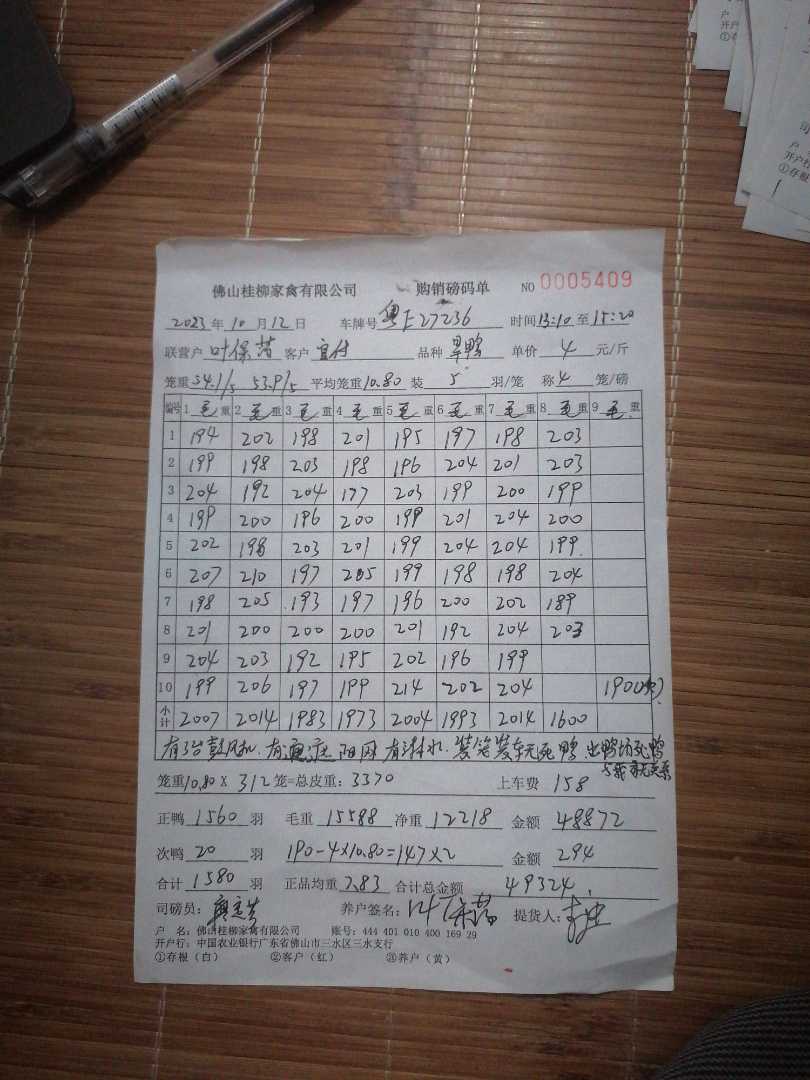 佛山桂柳家禽有限公司 购销磅码单 NO 0005409
2023年10月12日 车牌号 粤E27236 时间13:10至15:20
联营户 叶保苗 客户 宜付 品种 旱鸭 单价 4 元/斤
笼重54.1/5 53.9/5 平均笼重10.80 装 5 羽/笼 称4 笼/磅
编号 1毛重 2毛重 3毛重 4毛重 5毛重 6毛重 7毛重 8毛重 9毛重
1 194 202 198 201 195 197 198 203
2 199 198 203 198 196 204 201 203
3 204 192 204 177 203 199 200 199
4 199 200 196 200 199 201 204 200
5 202 198 203 201 199 204 204 199
6 207 210 197 205 199 198 198 204
7 198 205 193 197 196 200 202 189
8 201 200 200 200 201 192 204 203
9 204 203 192 195 202 196 199
10 199 206 197 199 214 202 204 190(次)
小计 2007 2014 1983 1973 2004 1993 2014 1600
有3台鼓风机.有 阳网 有淋水.装笼装车无死鸭.出鸭场死鸭
与我司无关系
笼重10.80X 312笼=总皮重:3370 上车费 158
正鸭 1560 羽 毛重 15588 净重 12218 金额 48872
次鸭 20 羽 190-4X10.80=147X2 金额 294
合计 1580 羽 正品均重 7.83 合计总金额 49324.
司磅员: 养户签名: 提货人:
户 名:佛山桂柳家禽有限公司 账号:444 401 010 400 169 29
开户行:中国农业银行广东省佛山市三水区三水支行
①存根(白) ②客户(红) ③养户(黄)